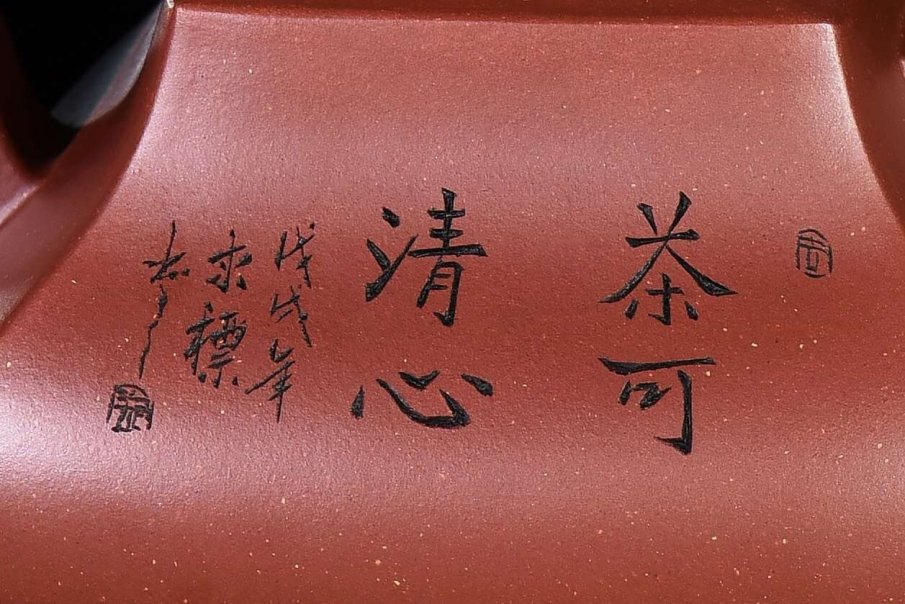 茶可
清心
戊戌年
永標